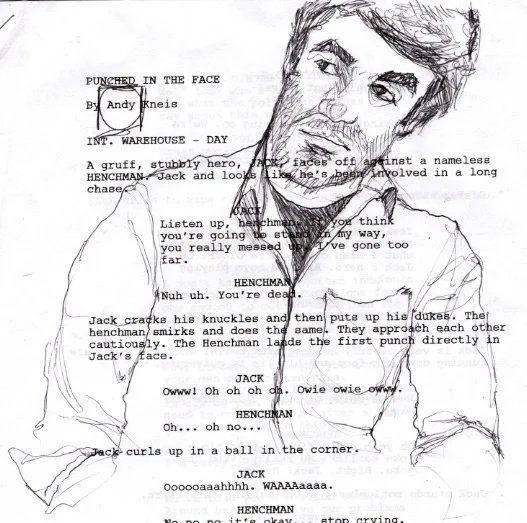 PUNCHED IN THE FACE
By Andy Kneis
INT. WAREHOUSE - DAY
A gruff, stubbly hero, JACK, faces off against a nameless
HENCHMAN. Jack and looks like he's been involved in a long
chase.
JACK
Listen up, henchman. If you think
you're going to stand in my way,
you really messed up. I've gone too
far.
HENCHMAN
Nuh uh. You're dead.
Jack cracks his knuckles and then puts up his dukes. The
henchman smirks and does the same. They approach each other
cautiously. The Henchman lands the first punch directly in
Jack's face.
JACK
Owww! Oh oh oh oh. Owie owie owww.
HENCHMAN
Oh... oh no...
Jack curls up in a ball in the corner.
JACK
Oooooaaahhhh. WAAAAaaaa.
HENCHMAN
No no no it's okay... stop crying.